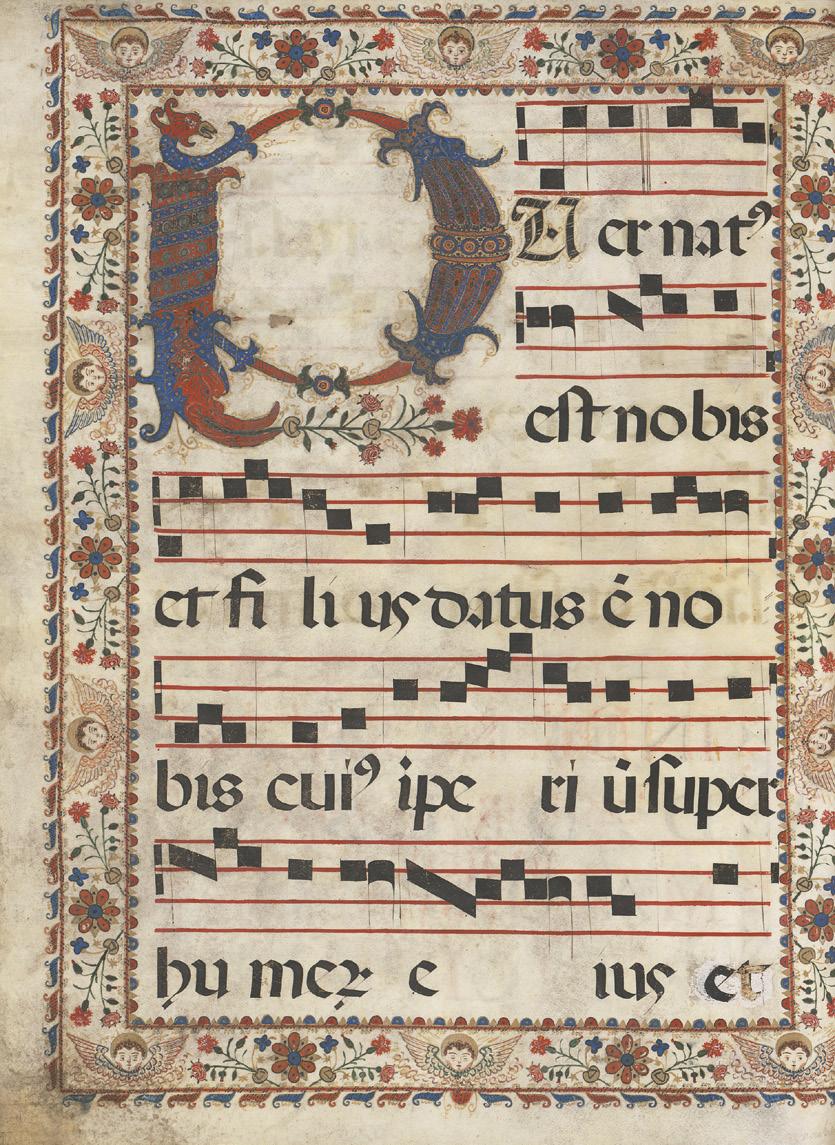 PU er natꝰ
est nobis
et fi li us datus ē no
bis cuiꝰ ipe ri ū super
hu meꝝ e ius et